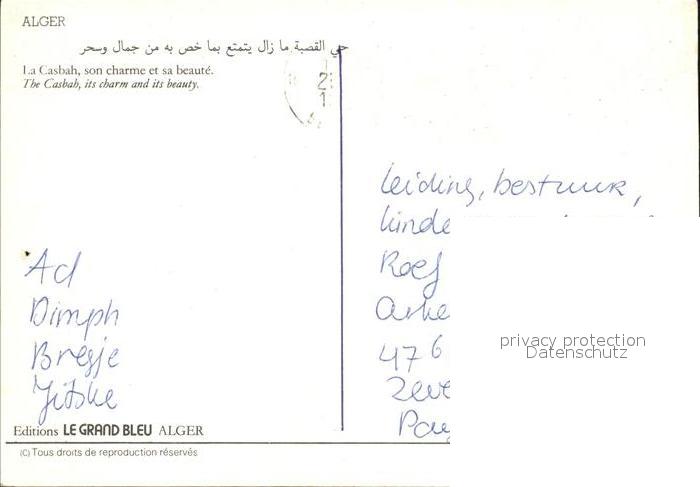 ALGER
حي القصبة ما زال يتمتع بما خص به من جمال وسحر
La Casbah, son charme et sa beauté.
The Casbah, its charm and its beauty.
2
1
leiding, bestuur,
kinde
Roef
47 6
Zeve
Ad
Dimph
Bregje
Jitske
Editions LE GRAND BLEU ALGER
(C) Tous droits de reproduction réservés
privacy protection
Datenschutz